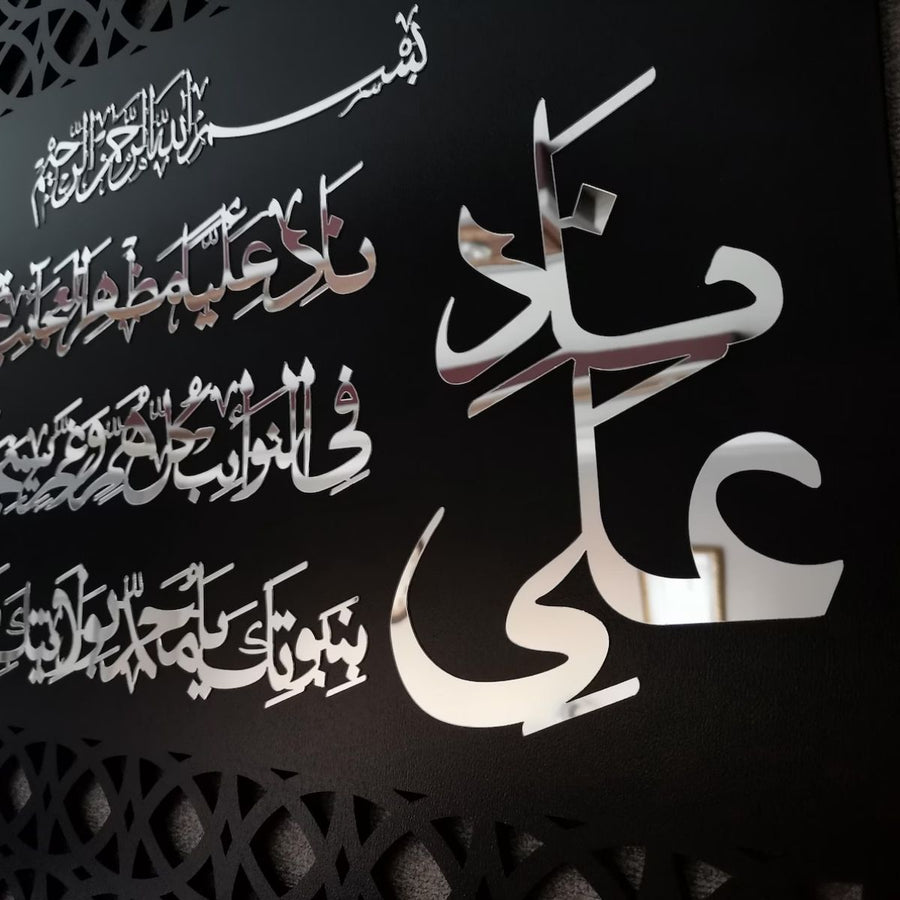 نَادِ
عَلِي
بِسْمِ اللهِ الرَّحْمٰنِ الرَّحِيمِ
نَادِ عَلِيًّا مَظْهَرَ الْعَجَائِبِ
فِي النَّوَائِبِ كُلُّ هَمٍّ وَغَمٍّ
بِنُبُوَّتِكَ يَا مُحَمَّدُ بِوَلَايَتِكَ